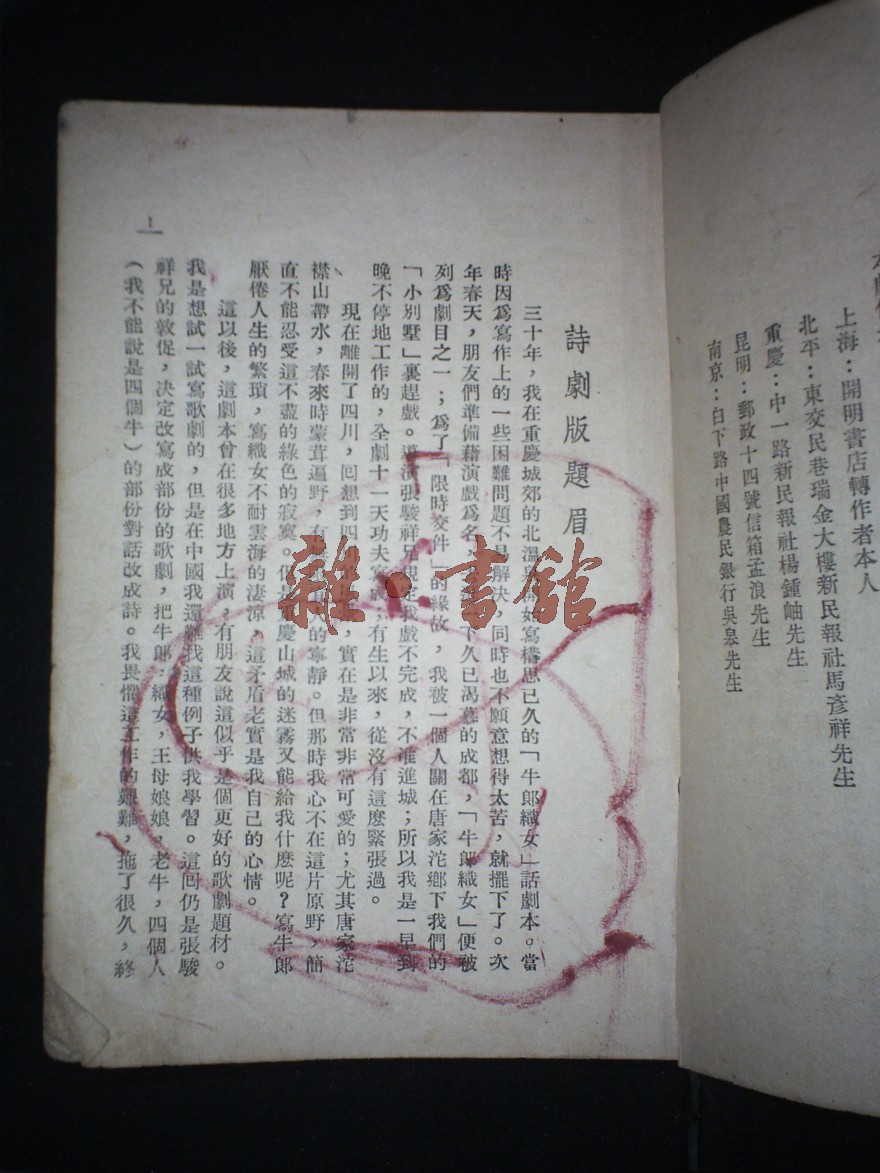 上海：開明書店轉作者本人
北平：東交民巷瑞金大樓新民報社馬彥祥先生
重慶：中一路新民報社楊鍾岫先生
昆明：郵政十四號信箱孟浪先生
南京：白下路中國農民銀行吳皋先生
詩劇版題眉
三十年，我在重慶城郊的北溫泉開始寫構思已久的「牛郎織女」話劇本。當
時因爲寫作上的一些困難問題不易解決，同時也不願意想得太苦，就擺下了。次
年春天，朋友們準備藉演戲爲名，下久已渴慕的成都，「牛郎織女」便被
列爲劇目之一；爲了「限時交件」的緣故，我被一個人關在唐家沱鄉下我們的
「小別墅」裏趕戲。導演張駿祥兄規定我戲不完成，不准進城；所以我是一早到
晚不停地工作的，全劇十一天功夫寫成，有生以來，從沒有這麽緊張過。
現在離開了四川，囘想到四，實在是非常非常可愛的；尤其唐家沱
襟山帶水，春來時蒙茸遍野，有的寧靜。但那時我心不在這片原野，簡
直不能忍受這不盡的綠色的寂寞。但是重慶山城的迷霧又能給我什麽呢？寫牛郎
厭倦人生的繁瑣，寫織女不耐雲海的淒涼，這矛盾老實是我自己的心情。
這以後，這劇本曾在很多地方上演，有朋友說這似乎是個更好的歌劇題材。
我是想試一試寫歌劇的，但是在中國我還難找這種例子供我學習。這囘仍是張駿
祥兄的敦促，決定改寫成部份的歌劇，把牛郎，織女，王母娘娘，老牛，四個人
（我不能說是四個牛）的部份對話改成詩。我畏懼這工作的艱難，拖了很久，終
1
雜·書館